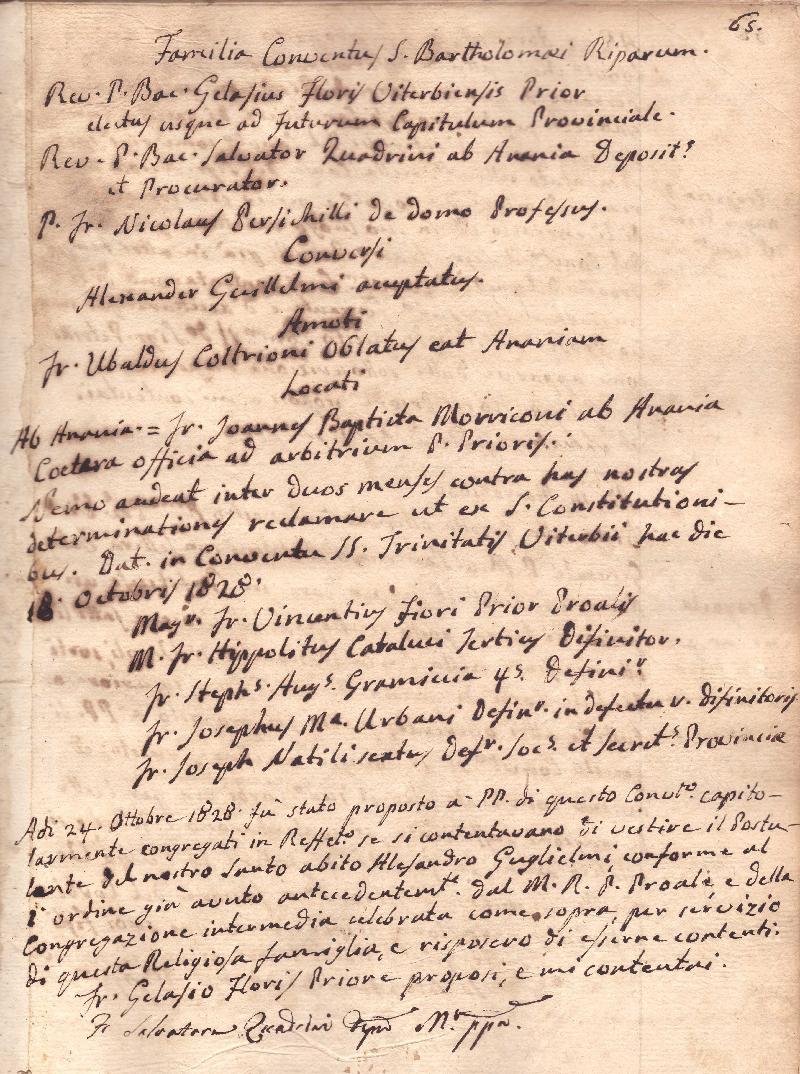 65.
Familia Conventus S. Bartholomæi Riparum.
Rev. P. Bac. Gelasius Floris Viterbiensis Prior
electus usque ad futurum Capitulum Provinciale.
Rev. P. Bac. Salvator Quadrini ab Anania Deposit.s
et Procurator.
P. Fr. Nicolaus Persichilli de domo Professus.
Conversi
Alexander Guillelmi acceptatus.
Amoti
Fr. Ubaldus Coltrioni Oblatus eat Ananiam
Locati
Ab Anania = Fr. Joannes Baptista Morriconi ab Anania
Coetera officia ad arbitrium P. Prioris.
Nemo audeat inter duos menses contra has nostras
determinationes reclamare ut ex S. Constitutioni-
bus. Dat. in Conventu SS. Trinitatis Viterbii hac die
18. Octobris 1828.
Mag.r Fr. Vincentius Fiori Prior Proalis
M. Fr. Hippolitus Cataluci Tertius Difinitor.
Fr. Steph.s Aug.s Gramiccia 4.s Defini.r
Fr. Josephus M.a Urbani Defin.r in defectu v. difinitoris
Fr. Joseph Natili sextus Def.r Soc.s et Secret.s Provinciæ
Adi 24. Ottobre 1828. fu stato proposto a PP. di questo Conv.to capito-
larmente congregati in Reffet.o se si contentavano di vestire il Postu-
lante del nostro Santo abito Alesandro Guglielmi, conforme al
l'ordine già avuto antecedentem.te dal M. R. P. Proale, e della
Congregazione intermedia celebrata come sopra, per servizio
di questa Religiosa famiglia, e risposero di esserne contenti.
Fr. Gelasio Floris Priore proposi, e mi contentai.
F. Salvatore Quadrini M.o pp.a